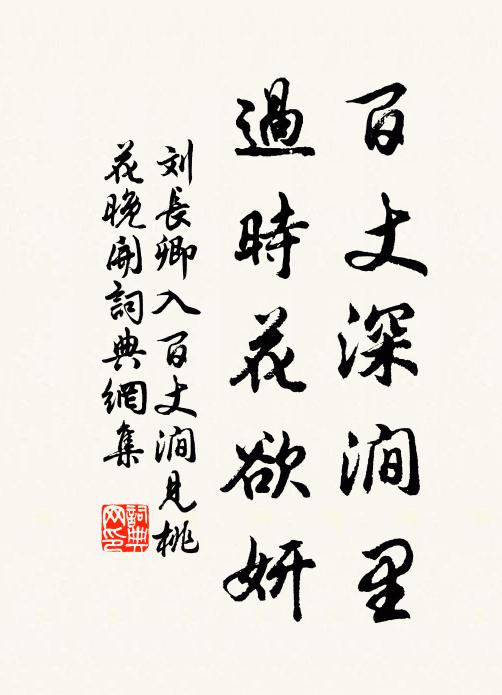 百丈深澗里
過時花欲妍
刘長卿入百丈澗見桃
花晚開詞典網集
詞典
网印